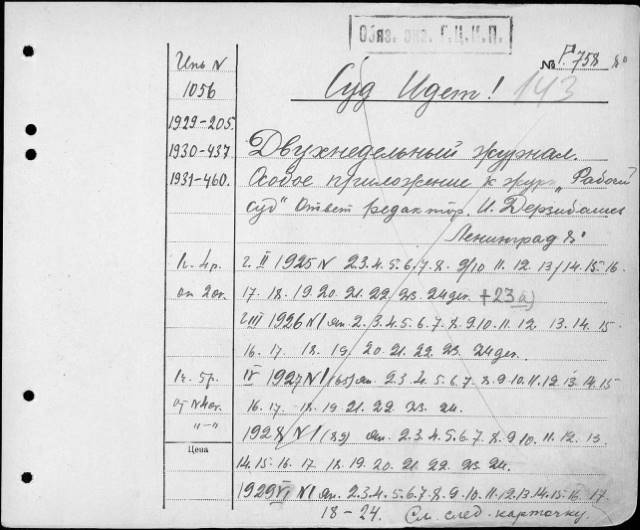 Обяз. экз. Г.Ц.К.П.
№ Г. 758 8°
Инв N
1056
Суд Идет! 143
1929-205.
1930-437
1931-460.
Двухнедельный журнал.
Особое приложение к жур. „Рабочий
суд“ Ответ редактор. И.
Ленинград 8°
г. II 1925 N 2.3.4.5.6.7.8.9/10 11. 12. 13/14.15.16.
17. 18. 19. 20. 21. 22. 23. 24 дек. +23а)
г III 1926 N 1 Ян. 2.3.4.5.6.7.8.9.10.11.12. 13. 14. 15
16. 17. 18. 19. 20. 21. 22. 23. 24 дек.
IV 1927 N 1 (65) Ян. 2.3.4.5.6.7.8.9.10.11.12.13.14.15
16. 17. 18. 19 21. 22. 23. 24.
1928 N 1 (89) Ян. 2.3.4.5.6.7.8.9.10.11.12.13.
14.15.16.17.18.19.20.21.22.23.24.
Цена
1929 VI N 1 Ян. 2.3.4.5.6.7.8.9.10.11.12.13.14.15.16.17
18-24. См. след. карточку.